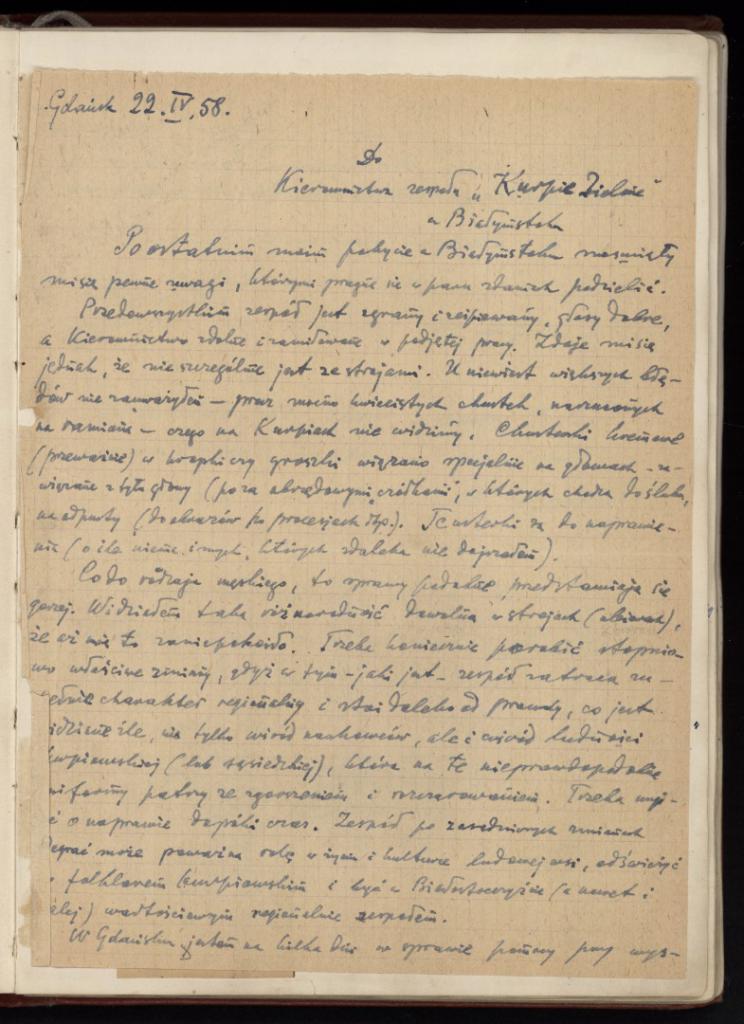 Gdańsk 22.IV.58.
Do
Kierownictwa zespołu „Kurpie Zielone"
w Białymstoku
Po ostatnim moim pobycie w Białymstoku nasunęły
mi się pewne uwagi, którymi pragnę się w paru zdaniach podzielić.
Przedewszystkim zespół jest zgrany i rozśpiewany, głosy dobre,
a Kierownictwo zdolne i zamiłowane w podjętej pracy. Zdaje mi się
jednak, że nie szczególnie jest ze strojami. U niewiast większych błę-
dów nie zauważyłem – prócz mocno kwiecistych chustek, narzuconych
na ramiona – czego na Kurpiach nie widzimy. Chusteczki kremowe
(przeważnie) w kropki czy groszki wiązano specjalnie na głowach – za-
wiązane z tyłu głowy (poza obrzędowymi „czółkami", w których chodzą do ślubu,
na odpusty (do obrazów po procesjach itp.). Te usterki są do naprawie-
nia (o ile nie ma innych, których zdaleka nie dojrzałem).
Co do rodzaju męskiego, to sprawy podobne przedstawiają się
gorzej. Widziałem taką różnorodność dowolną w strojach (ubiorach),
że aż mię to zaniepokoiło. Trzeba koniecznie porobić stopnio-
wo właściwe zmiany, gdyż w tym – jaki jest – zespół zatraca zu-
ełnie charakter regionalny i stoi daleko od prawdy, co jest
idziane źle, nie tylko wśród naukowców, ale i wśród ludności
kurpiowskiej (lub sąsiedzkiej), która na te nieprawdopodobne
uniformy patrzy ze zgorszeniem i rozczarowaniem. Trzeba myś-
ć o naprawie dopóki czas. Zespół po zasadniczych zmianach
degrać może poważną rolę w życiu i kulturze ludowej wsi, odświeżyć
folklorem kurpiowskim i być w Białostocczyźnie (a nawet i
alej) wartościowym regionalnie zespołem.
W Gdańsku jestem na kilka dni w sprawie pomocy przy wys-